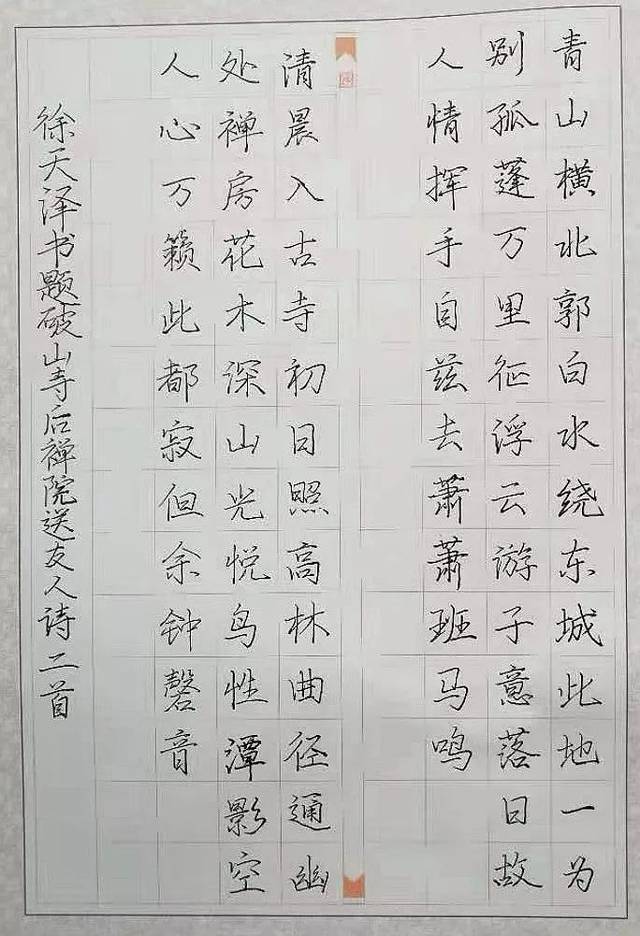 青山横北郭白水绕东城此地一为
别孤蓬万里征浮云游子意落日故
人情挥手自兹去萧萧班马鸣
清晨入古寺初日照高林曲径通幽
处禅房花木深山光悦鸟性潭影空
人心万籁此都寂但余钟磬音
徐天泽书题破山寺后禅院送友人诗二首